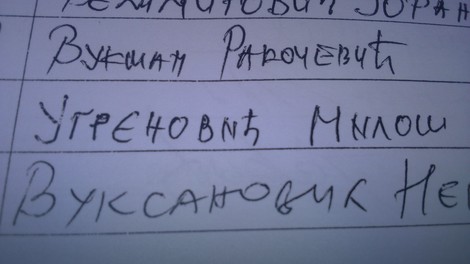 ЗОРАН
ВУКШАН РАКОЧЕВИЋ
УГРЕНОВИЋ МИЛОШ
ВУКСАНОВИК